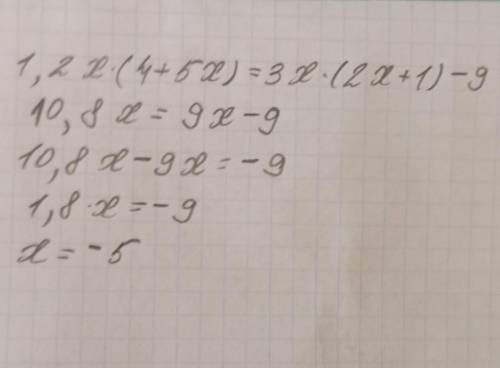 1,2 x·(4+5x)=3x·(2x+1)-9
10,8 x = 9x-9
10,8 x-9x=-9
1,8·x=-9
x=-5